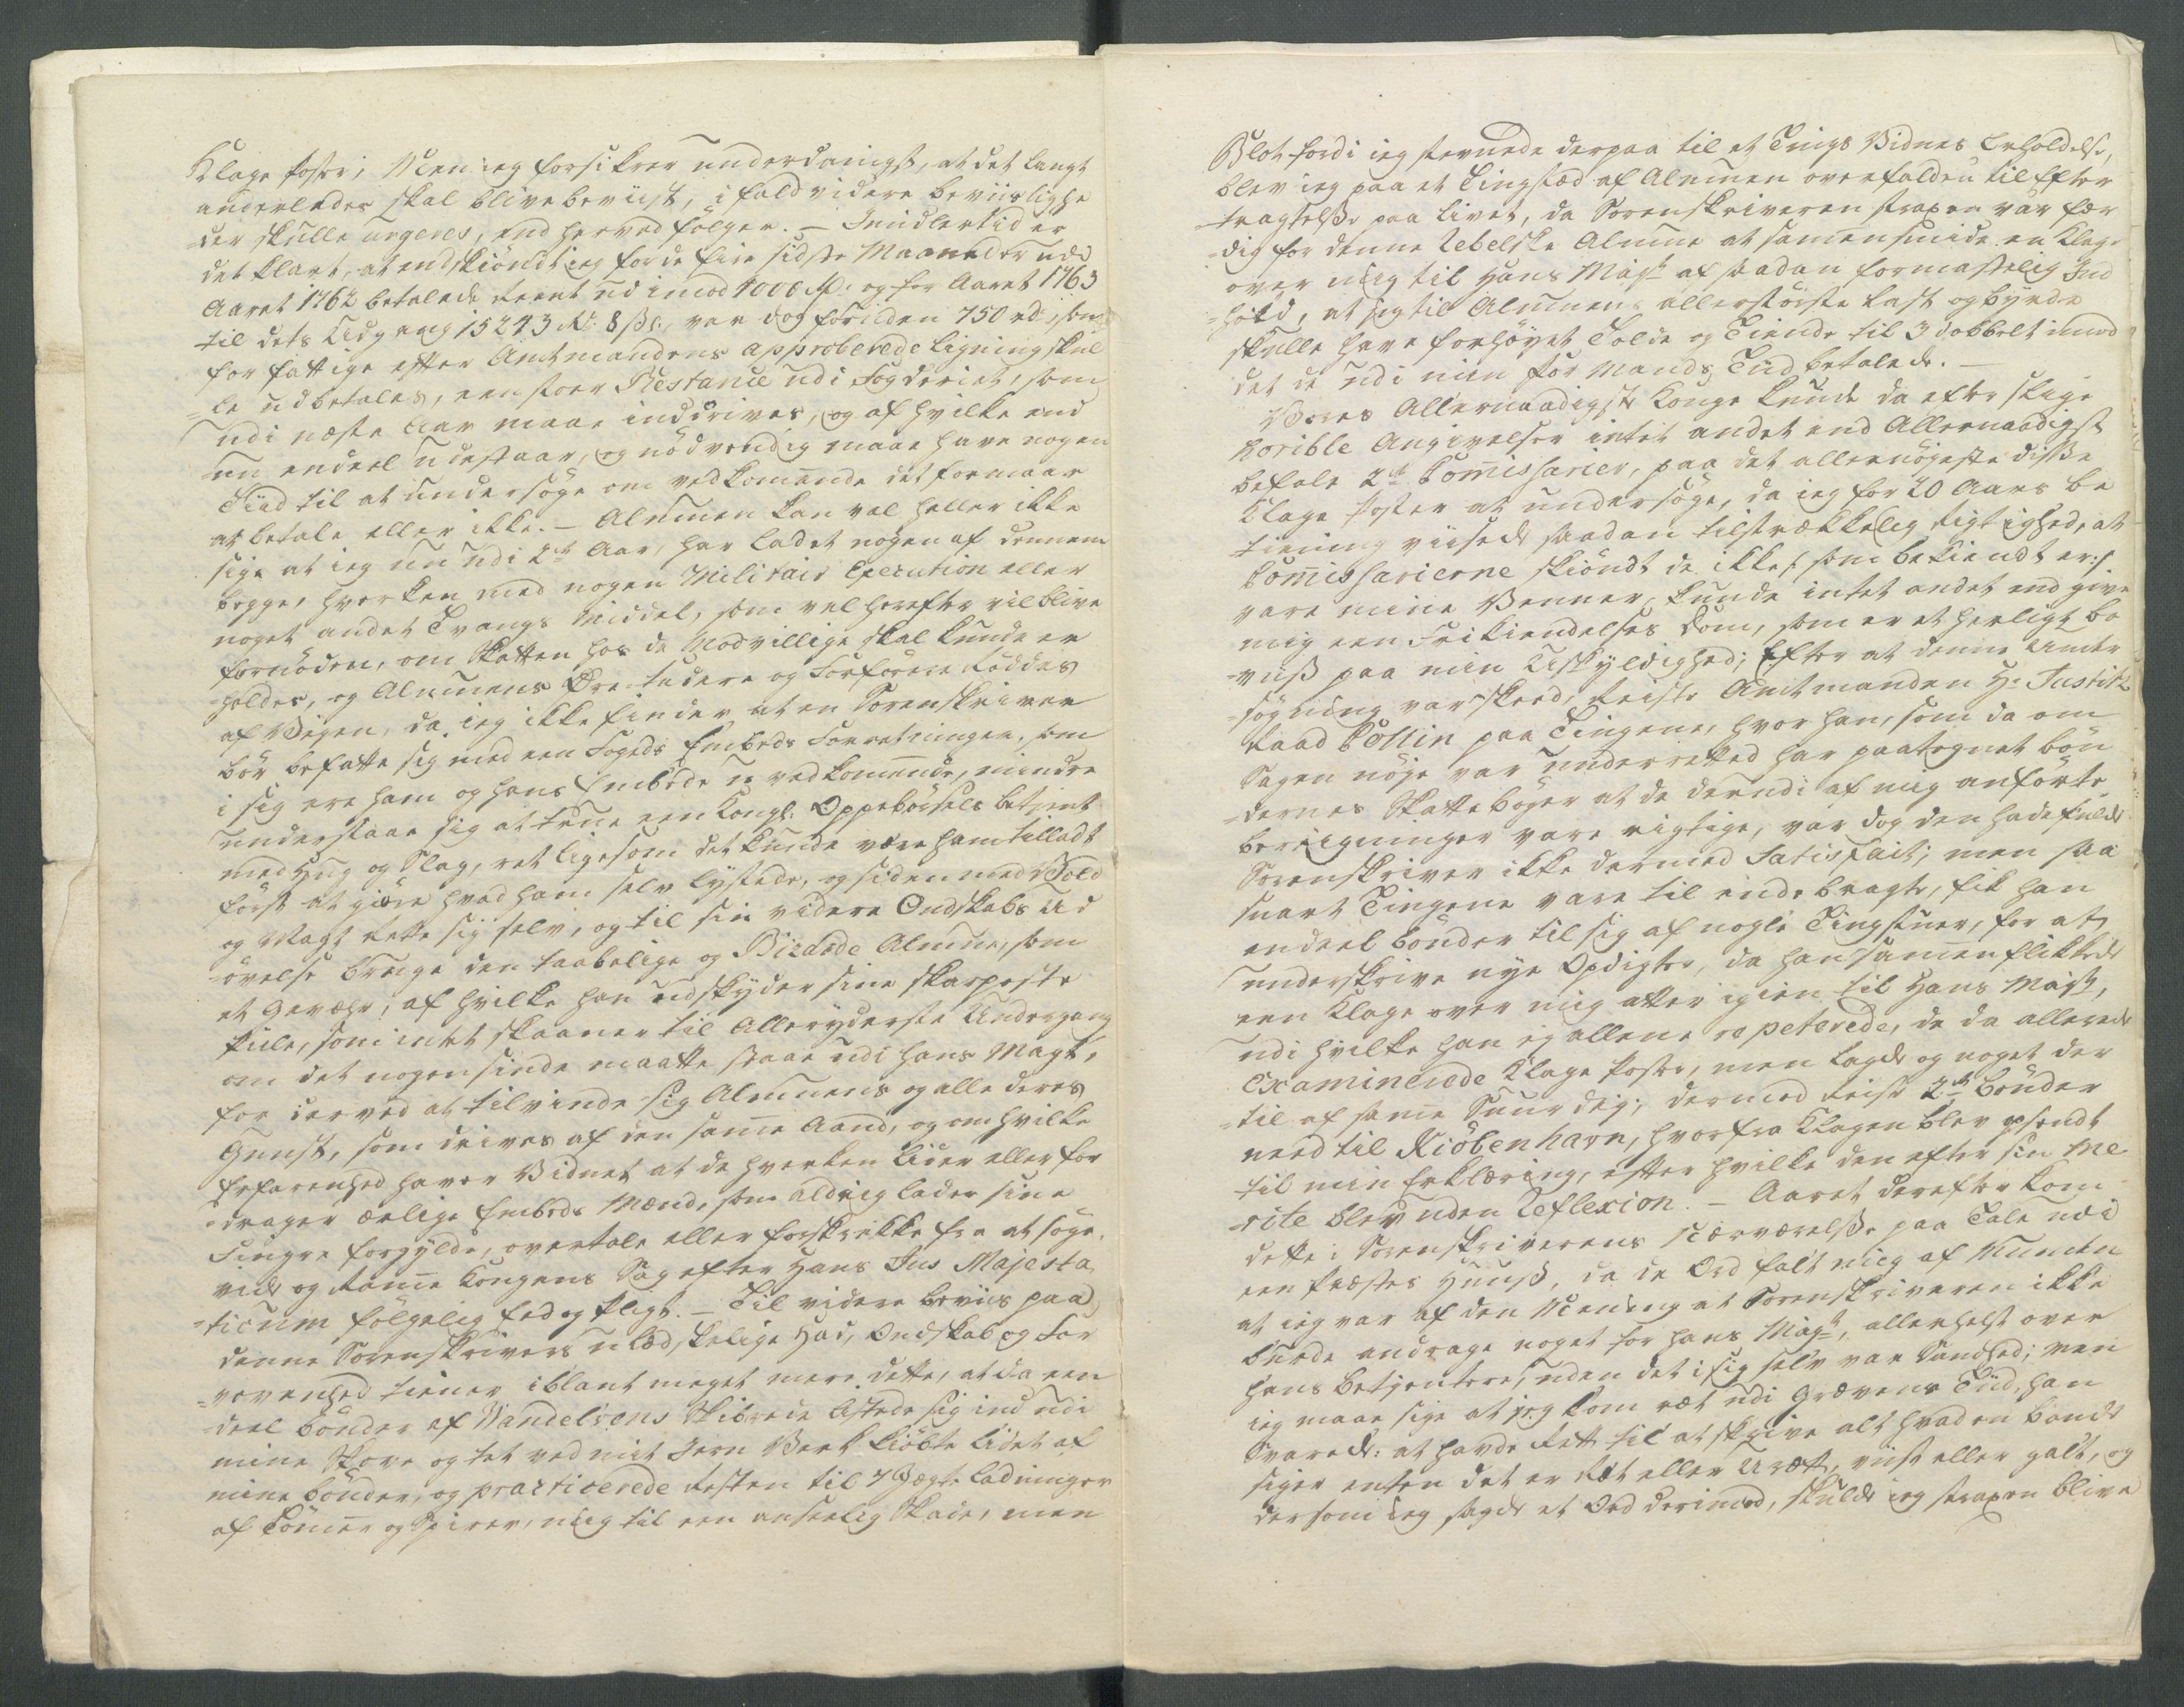 Klage Poster; Men ieg forsikrer underdanigst, at det langt
anderledes skal blive beviist, i fald videre beviislighe
=der skulle urgeres, end herved fölger. – Imidlertid er
det klart, at endskiöndt ieg for de fiire sidste Maaneder udi
Aaret 1762 betalede reent ud imod 4000 Rd: og for Aaret 1763
til dets Udgang 15243 Rd: 8 ss:, var dog foruden 750 rd: som
for fattige efter Amtmandens approberede Ligning skul
=le udbetales, een stoer Restance udi Fogderiet, som
udi næste Aar maae inddrives, og af hvilke end
nu endeel udestaar, og nödvendig maae have nogen
Tiid til at undersöge om vedkommende det formaar
at betale eller ikke. – Almuen kan vel heller ikke
sige at ieg nu udi 2de Aar, har ladet nogen af dennem
bygge, hverken med nogen Militair Execution eller
noget andet Tvangs Middel, som vel herefter vil blive
fornöden, om Skatten hos de Modvillige skal kunde er
=holdes, og Almuens Öre-tudere og Forförere ryddes
af Veigen, da ieg ikke finder at en Sorenskriver
bör befatte sig med een Fogeds Embeds Forretninger, som
i sig ere ham og hans Embede uvedkommende, mindre
understaae sig at true een Kongl: Oppebörsels betient
med Hug og Slag, ret ligesom det kunde være ham tilladt
först at giöre hvad ham selv lystede, og siden med Vold
og Magt rette sig selv, og til sin videre Ondskabs Ud
=övelse bruge den taabelige og Bizarde Almue, som
et Gevæhr, af hvilke han udskyder sine skarpeste
Piile, som intet skaaner til Alleryderste Undergang
om det nogensinde maatte staae udi hans Magt,
for derved at tilvinde sig Almuens og alle deres
Gunst, som drives af den samme Aand, og om hvilke
Erfarenhed haver Vidnet at de hverken lider eller for
=drager ærlige Embeds Mænd, som aldrig lader sine
Fingre forgylde, overtale eller forskrekke fra at söge,
vide og ramme Kongens Sag efter Hans Jus Majesta
=ticum fölgelig Eed og Pligt. – Til videre beviis paa
denne Sorenskrivers ulædskelige Had, Ondskab og For
=vovenhed tiener iblant meget mere dette, at da een
=deel bönder af Vandelsens Skibrede listede sig ind udi
mine Skove og tet ved mit Jern Verk kiöbte lidet af
mine bönder, og practicerede Resten til 7 Jægte ladninger
af Tömmer og Spirer, mig til een anseelig Skade, men
Blot fordi ieg stevnede derpaa til et Tings Vidnes Erholdelse,
blev ieg paa et Tingsted af Almuen overfalden til Efter
=tragtelse paa Livet, da Sorenskriveren straxen var fær
=dig for denne Rebelske Almue at sammensmide en Klage
over mig til Hans Mayt: af saadan formastelig Ind
=hold, at ieg til Almuens allerstörste last og byrde
skulle have forhöyet Tolde og Tiende til 3 dobbelt imod
det de udi min For Mands Tiid betalede. –
Vores Allernaadigste Konge kunde da efter slige
horible Angivelser intet andet end Allernaadigst
befale 2de Commissarier, paa det allernöyeste disse
Klage Poster at undersöge, da ieg for 20 Aars be
tiening viisede saadan tilstrækkelig rigtighed, at
Commissarierne skiöndt de ikke /: som bekiendt er :/
vare mine Venner, kunde intet andet end give
mig een Frikiendelses Dom, som er et herligt be
=viis paa min Uskyldighed; Efter at denne Under
=sögning var skeed, reiste Amtmanden Hr: Justitz
raad Collin paa Tingene, hvor han, som da om
Sagen nöje var underretted har paategnet bön
=dernes Skattebögger at de derudi af mig anförte
beregninger vare rigtige, var dog den hadefulde
Sorenskriver ikke dermed Satisfait; men saa
snart Tingene vare til ende bragte, fik han
endeel bönder til sig af nogle Tingstuer, for at
underskrive nye Opdigter, da han sammenflikkede
een Klage over mig atter igien til Hans Mayt:,
udi hvilke han ey allene repeterede, de da allerede
Examinerede Klage Poster, men lagde og noget der
=til af samme Suurdeig; dermed reiste 2de bönder
need til Kiöbenhavn, hvorfra Klagen blev nedsendt
til min Erklæring, efter hvilke den efter sin Me
=rite blev uden Reflexion. – Aaret derefter kom
dette i Sorenskriverens Nærværelse paa Tale udi
een Præstes Huus, da de Ord falt mig af Munden
at ieg var af den Meening at Sorenskriveren ikke
burde andrage noget for Hans Mayt:, allerhelst over
hans betjentere, uden det i sig selv var Sandhed; men
ieg maae sige at jeg kom ret udi Grevens Tiid, han
Svarede: at havde Ret til at skrive alt hvad en bonde
siger enten det er Ret eller Uret, viist eller galt, og
dersom ieg sagde et Ord derimod, skulde ieg straxen blive